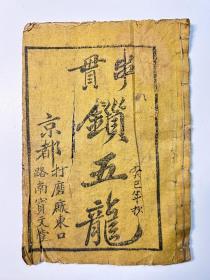 串貫
鎖五龍
癸巳年抄
京都
打磨厰東口
路南寳文堂